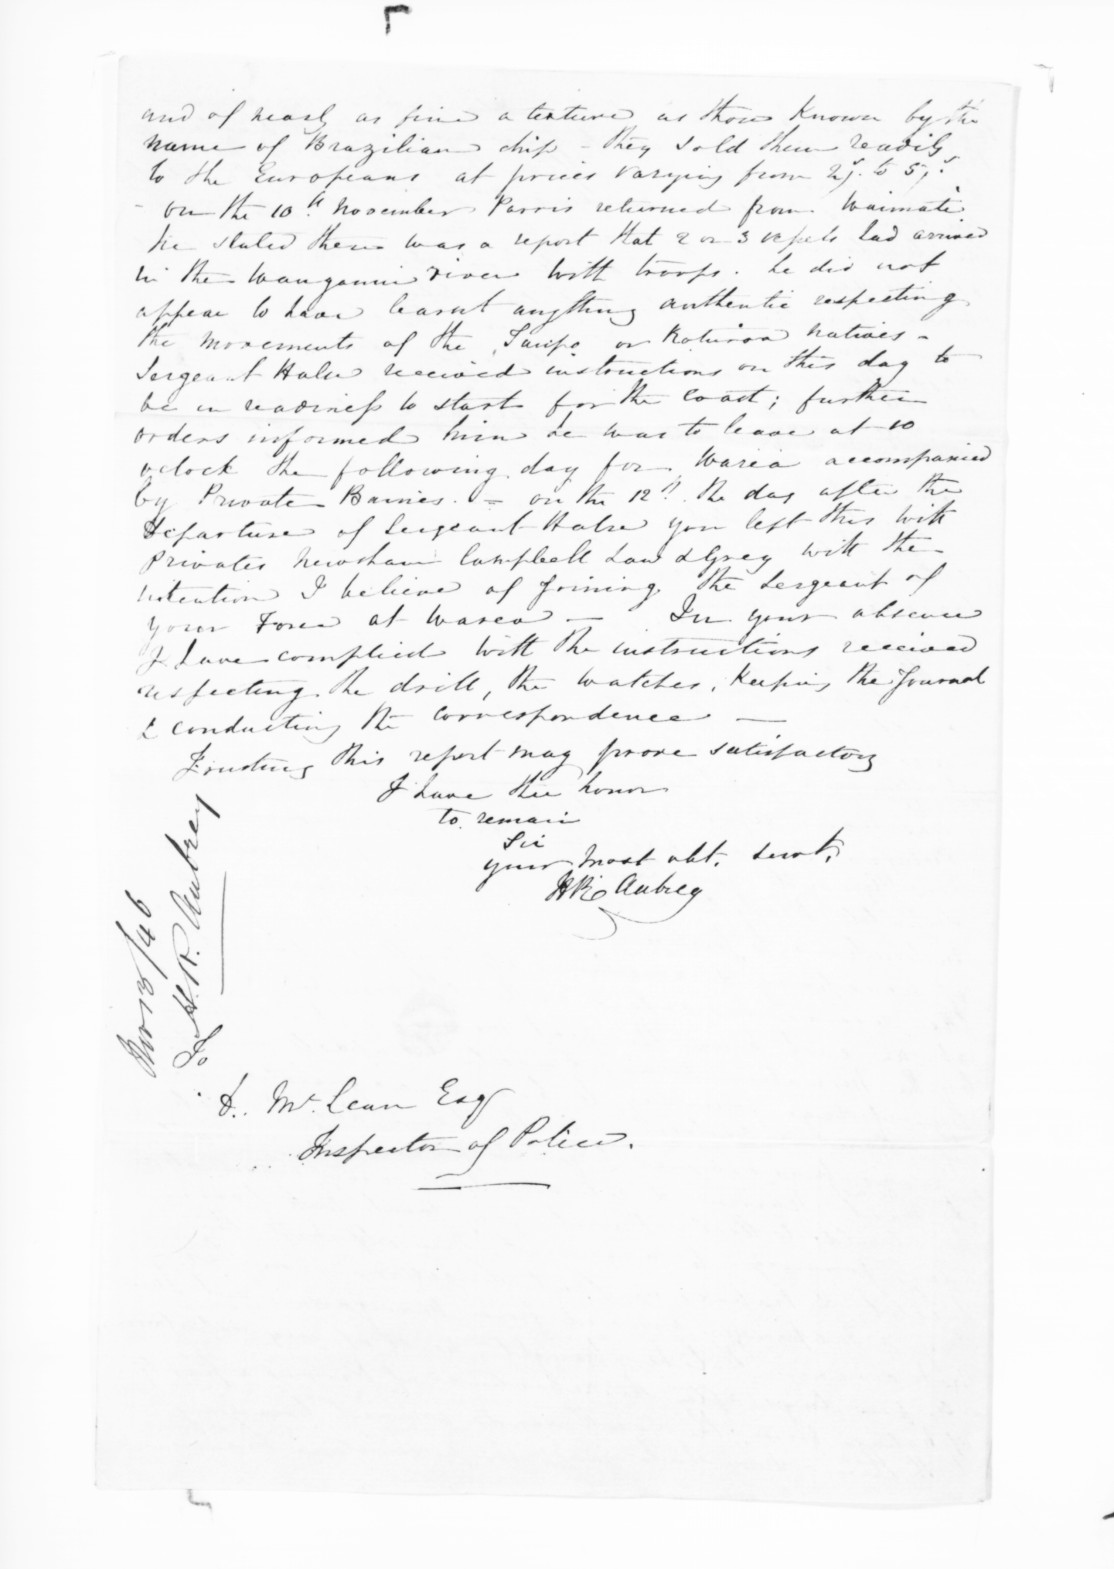 and of nearly as fine a texture as those known by the
name of Brazilian chip - they sold them readily
to the Europeans at prices varying from 2/. to 5/.
- on the 10th November Parris returned from Waimate
he stated there was a report that 2 or 3 vessels had arrived
in the Wanganui river with troops. he did not
appear to have learnt anything authentic respecting
the movements of the Taupo or Roturoa natives -
Sergeant Halse received instructions on this day to
be in readiness to start for the Coast; further
orders informed him he was to leave at 10
oclock the following day for Warea accompanied
by Private Barnes. - on the 12th. the day after the
departure of Sergeant Halse you left this with
Privates Newsham Campbell Law & Grey with the
intention I believe of joining the Sergeant of
your Force at Warea - In your absence
I have complied with the instructions received
respecting the drill, the watches, keeping the Journal
& conducting the correspondence -
Trusting this report may prove satisfactory
I have the honor
to remain
Sir
your most obt. servt,
H R Aubrey
Nov 13/46
H. R. Aubrey
To
D. McLean Esq
Inspector of Police.